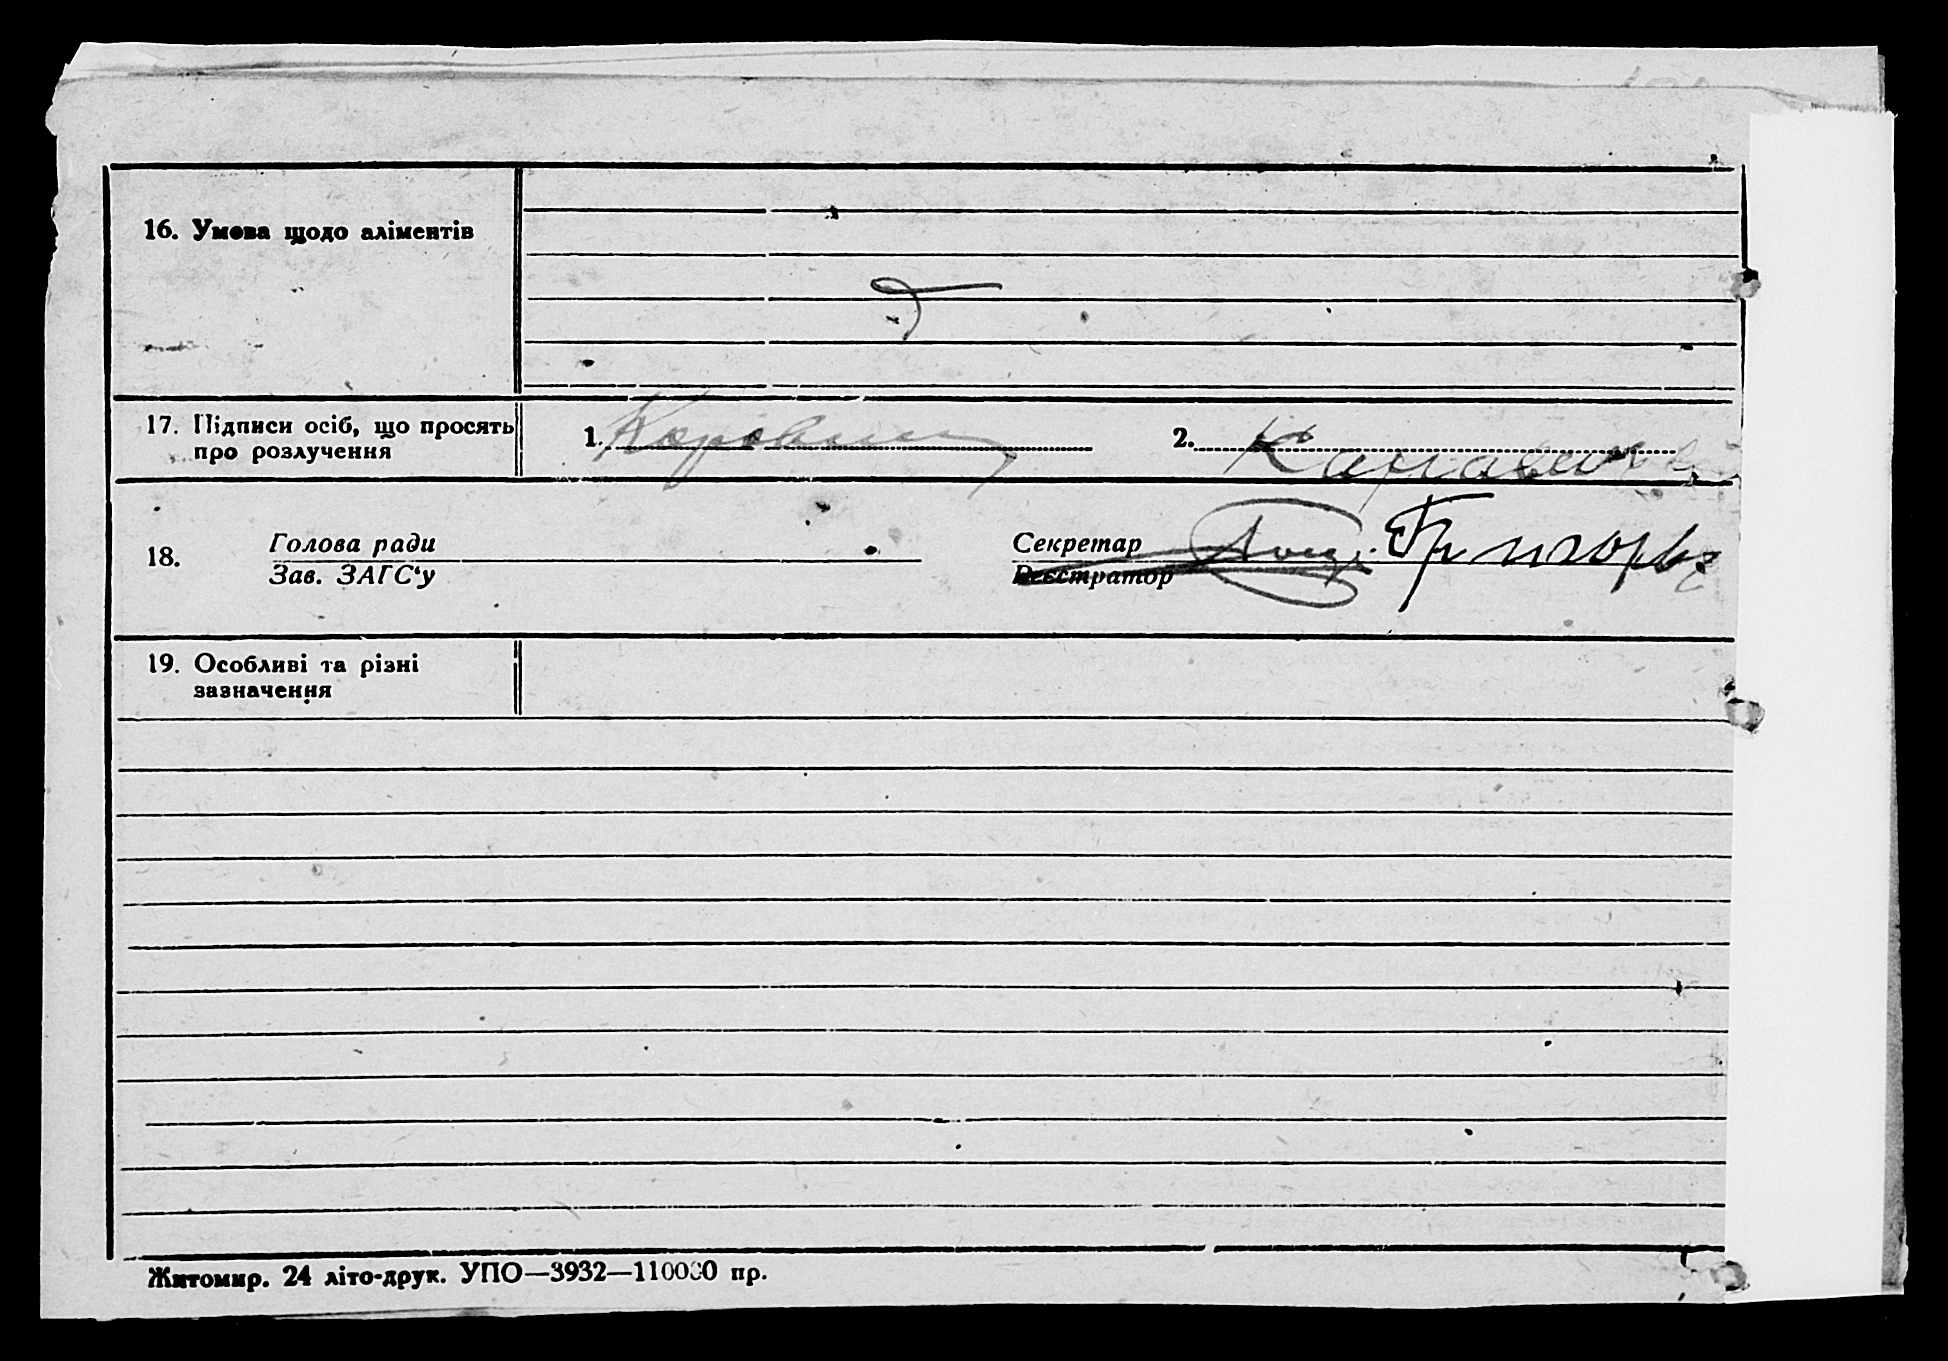 16. Умова щодо аліментів
17. Підписи осіб, що просять
про розлучення
1.
2.
18.
Голова ради
Зав. ЗАГС‘у
Секретар
Реєстратор
19. Особливі та різні
зазначення
Житомир. 24 літо-друк. УПО—3932—110000 пр.